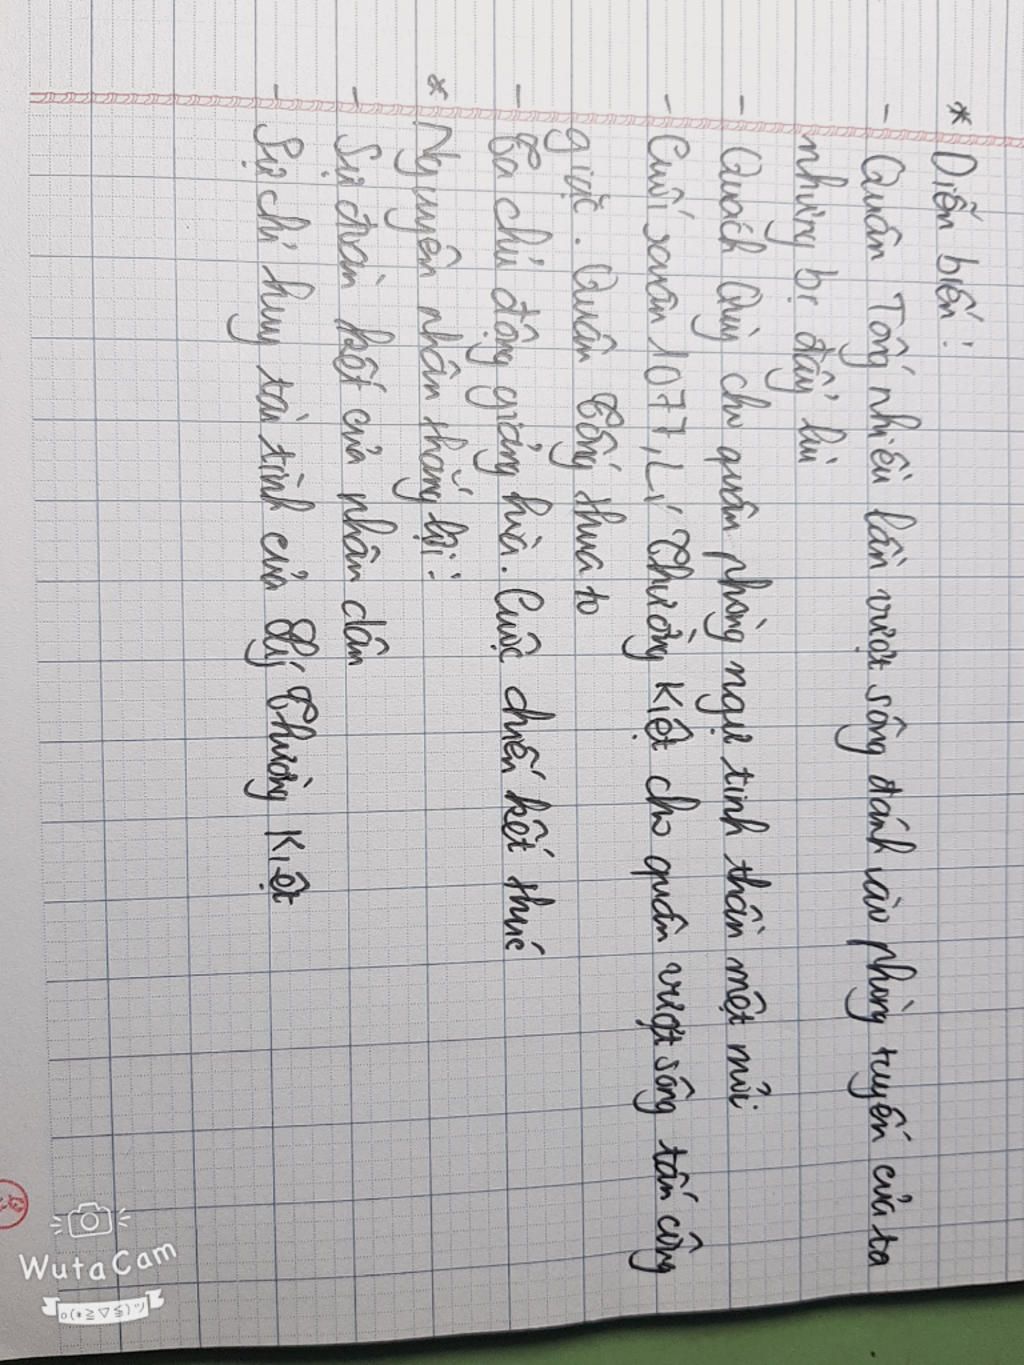 * Diễn biến:
- Quân Tống nhiều lần vượt sông đánh vào phòng tuyến của ta
nhưng bị đẩy lùi
- Quách Quỳ cho quân phòng ngự tinh thần mệt mỏi
- Cuối xuân 1077, Lí Thường Kiệt cho quân vượt sông tấn công
giặc. Quân Tống thua to
- Ta chủ động giảng hòa. Cuộc chiến kết thúc
* Nguyên nhân thắng lợi:
- Sự đoàn kết của nhân dân
- Sự chỉ huy tài tình của Lý Thường Kiệt
WutaCam
o(*≧▽≦)ツ